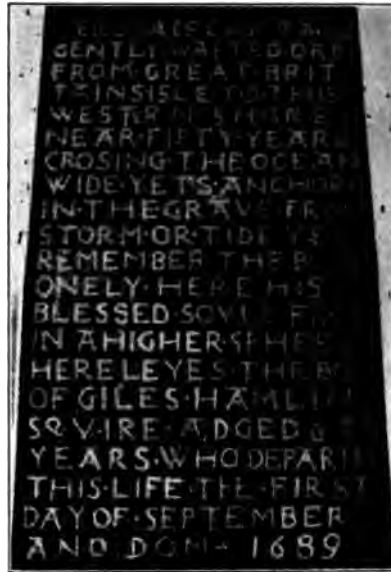 GENTLY·WAFTED OR
FROM·GREAT·BRIT
TAINS ISLE TO THIS
WESTERN SHORE
NEAR·FIFTY·YEARS
CROSING·THE OCEAN
WIDE·YETS·ANCHORD
IN·THE GRAVE·FROM
STORM·OR·TIDE
REMEMBER THE
ONELY·HERE HIS
BLESSED·SOVLE
IN A HIGHER·SPHERE
HERE LEYES·THE
OF GILES·HAMLIN
SQVIRE·ADGED
YEARS·WHO DEPART
THIS·LIFE·THE·FIRST
DAY OF·SEPTEMBER
ANO DOM- 1689